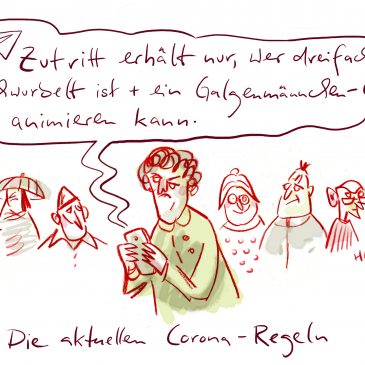 Zutritt erhält nur, wer dreifach
ist + ein Galgenmännchen-
animieren kann.
Die aktuellen Corona-Regeln